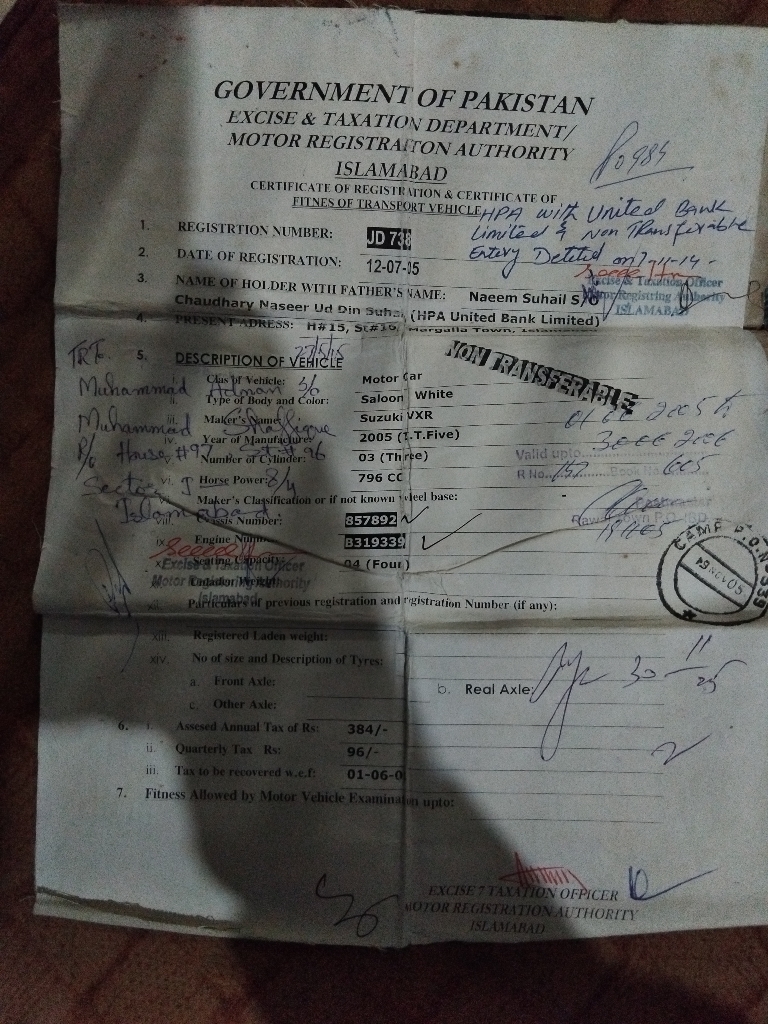 GOVERNMENT OF PAKISTAN
EXCISE & TAXATION DEPARTMENT/
MOTOR REGISTRAITON AUTHORITY
ISLAMABAD
CERTIFICATE OF REGISTRATION & CERTIFICATE OF
FITNES OF TRANSPORT VEHICLE
HPA with United Bank
Limited & Non Transferable
Entery Deleted on 7-11-14-
1. REGISTRTION NUMBER: JD 738
2. DATE OF REGISTRATION: 12-07-05
Excise & Taxation Officer
Motor Registring Authority
ISLAMABAD
3. NAME OF HOLDER WITH FATHER'S NAME: Naeem Suhail S/O
Chaudhary Naseer Ud Din Suha (HPA United Bank Limited)
4. PRESENT ADRESS: H#15, St#10, Margalla Town, Islamabad
NON TRANSFERABLE
TRT. 27/5/15
Muhammad Adnan S/o
Muhammad Shaffique
R/o House #97 St # 26
Sector I 8/4
Islamabad.
5. DESCRIPTION OF VEHICLE
Clas of Vehicle: Motor Car
ii. Type of Body and Color: Saloon White
iii. Maker's Name: Suzuki VXR
iv. Year of Manufactur: 2005 (I.T.Five)
v. Number of Cylinder: 03 (Three)
Horse Power: 796 CC
Maker's Classification or if not known wheel base: -
viii. Chassis Number: 857892
ix. Engine Number: 8319339
x. Seating Capacity: 04 (Four)
Excise & Taxation Officer
Motor Authority
Islamabad
Valid upto
R No. 157 Book No. 605
CAMP P.O.
xii. Particulars of previous registration and registration Number (if any):
xiii. Registered Laden weight:
xiv. No of size and Description of Tyres:
a. Front Axle:
b. Real Axle:
c. Other Axle:
30 11/25
6. i. Assesed Annual Tax of Rs: 384/-
ii. Quarterly Tax Rs: 96/-
iii. Tax to be recovered w.e.f: 01-06-0
7. Fitness Allowed by Motor Vehicle Examination upto:
EXCISE 7 TAXATION OFFICER
MOTOR REGISTRATION AUTHORITY
ISLAMABAD